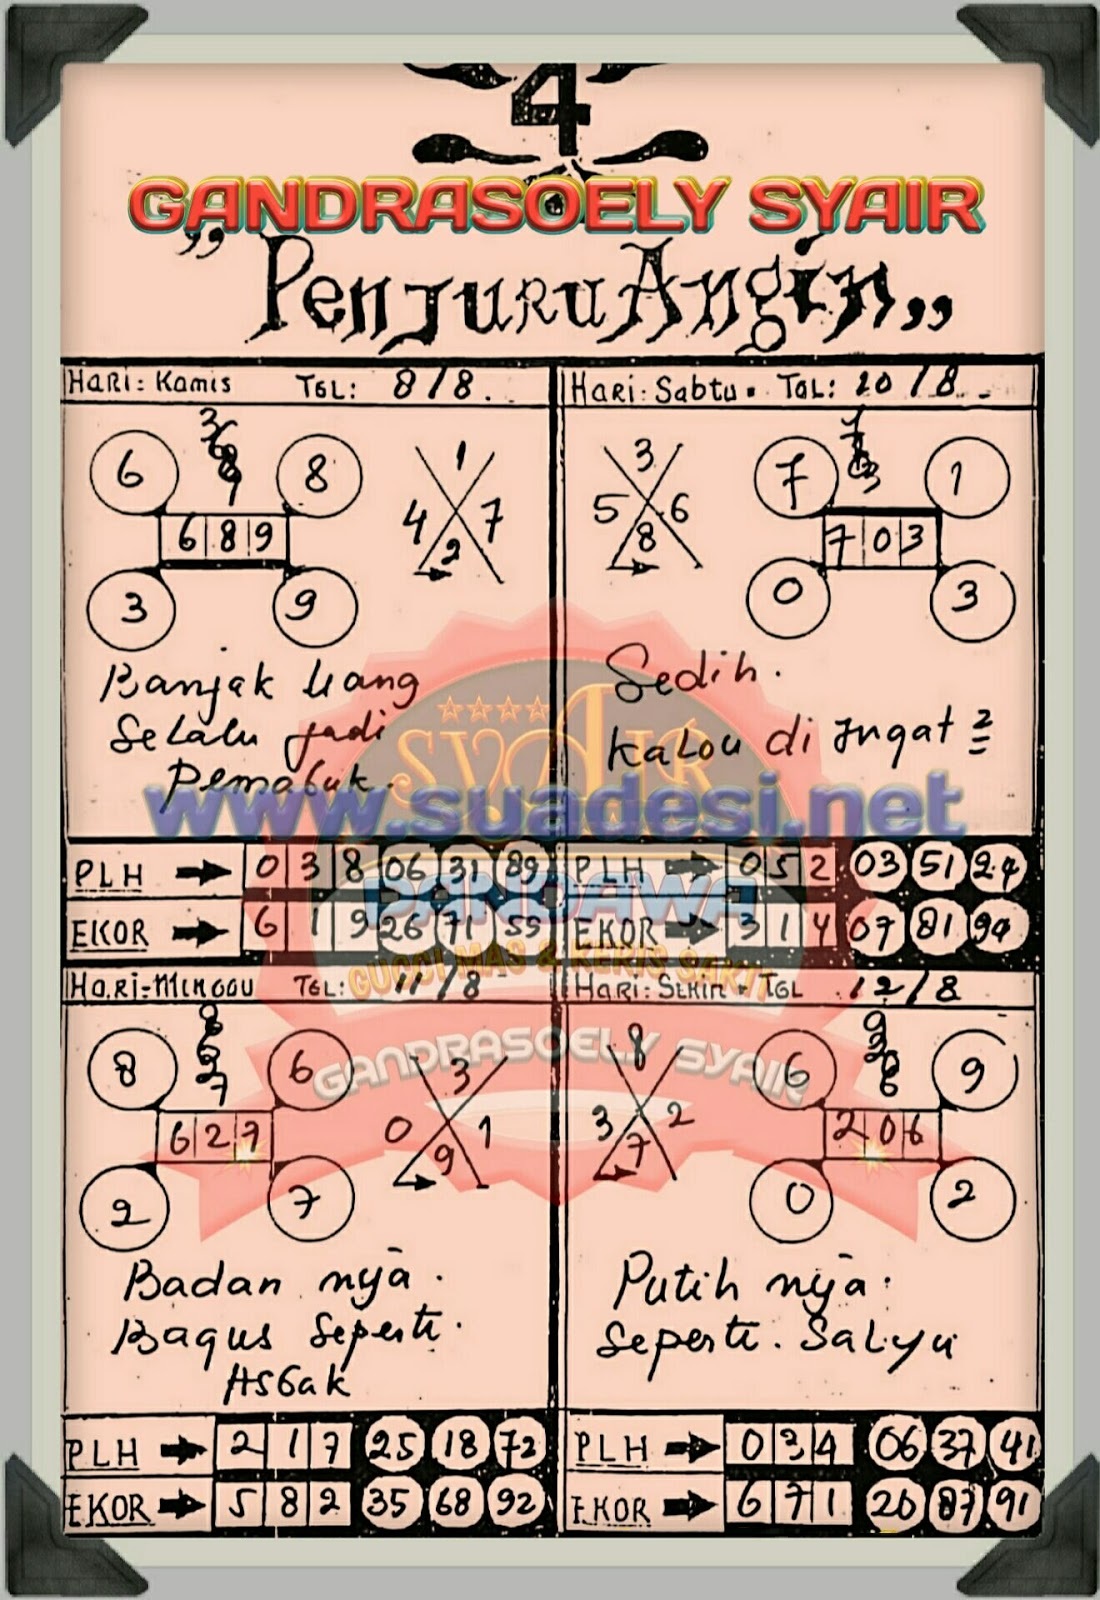 4
GANDRASOELY SYAIR
" Penjuru Angin "
HARI: Kamis TGL: 8/8.
3
6
8
9
6 8
6 8 9
3 9
1
4 7
2
Banjak Uang
Selalu jadi
Pemabuk.
PLH 0 3 8 06 31 89
EKOR 6 1 9 26 71 59
HARI: Sabtu. TGL: 10/8.
3
5 6
8
7 1
7 0 3
0 3
Sedih.
Kalou di Ingat 2
PLH 0 5 2 03 51 24
EKOR 3 1 4 07 81 94
SYAIR
www.suadesi.net
PANDAWA
GUCCI MAS & KERIS SAKTI
GANDRASOELY SYAIR
HARI-MINGGU TGL: 11/8
8 6
6 2 7
2 7
3
0 1
9
Badan nja.
Bagus Seperti.
PLH 2 1 7 25 18 72
EKOR 5 8 2 35 68 92
HARI: SENIN. TGL 12/8
8
3 2
7
6 9
2 0 6
0 2
Putih nja.
Seperti. Salyu
PLH 0 3 4 06 37 41
EKOR 6 7 1 20 87 91